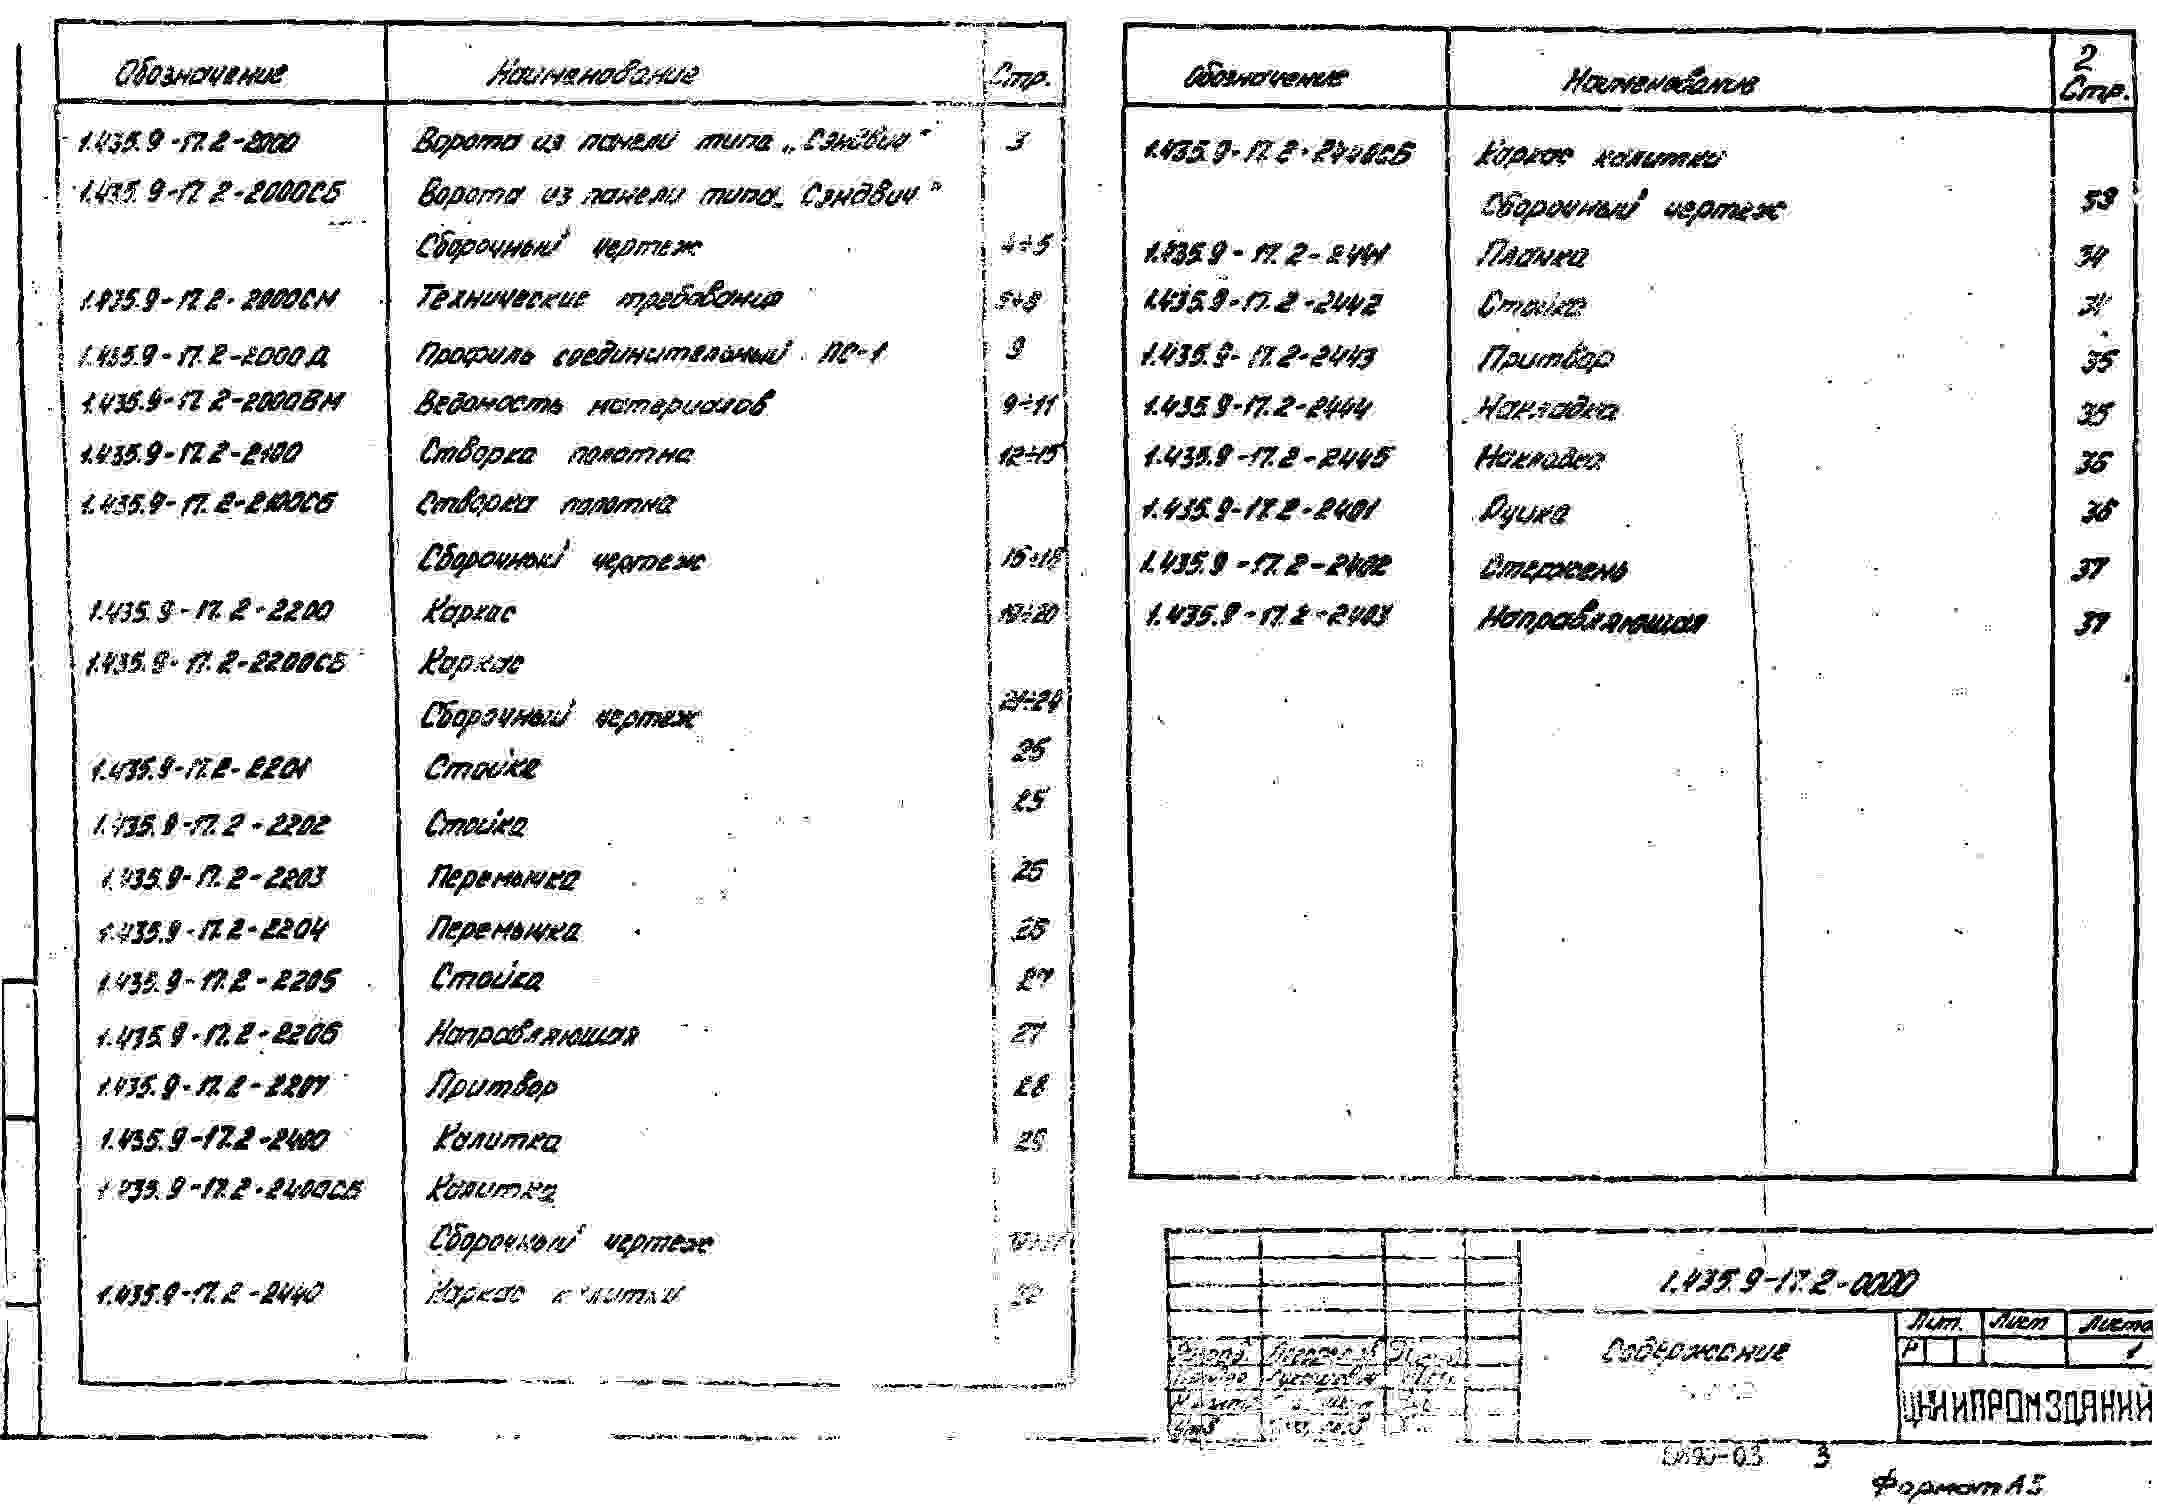 Обозначение Наименование Стр.
1.435.9-17.2-2000 Ворота из панели типа „Сэндвич" 3
1.435.9-17.2-2000СБ Ворота из панели типа „Сэндвич"
Сборочный чертеж 4÷5
1.435.9-17.2-2000СМ Технические требования 5÷8
1.435.9-17.2-2000Д Профиль соединительный ПС-1 9
1.435.9-17.2-2000ВМ Ведомость материалов 9÷11
1.435.9-17.2-2100 Створка полотна 12÷15
1.435.9-17.2-2100СБ Створка полотна
Сборочный чертеж 16÷18
1.435.9-17.2-2200 Каркас 19÷20
1.435.9-17.2-2200СБ Каркас
Сборочный чертеж 21÷24
1.435.9-17.2-2201 Стойка 25
1.435.9-17.2-2202 Стойка 25
1.435.9-17.2-2203 Перемычка 26
1.435.9-17.2-2204 Перемычка 26
1.435.9-17.2-2205 Стойка 27
1.435.9-17.2-2206 Направляющая 27
1.435.9-17.2-2207 Притвор 28
1.435.9-17.2-2400 Калитка 29
1.435.9-17.2-2400СБ Калитка
Сборочный чертеж
1.435.9-17.2-2440 Каркас калитки 32
2
Обозначение Наименование Стр.
1.435.9-17.2-2440СБ Каркас калитки
Сборочный чертеж 33
1.435.9-17.2-2441 Планка 34
1.435.9-17.2-2442 Стойка 34
1.435.9-17.2-2443 Притвор 35
1.435.9-17.2-2444 Накладка 35
1.435.9-17.2-2445 Накладка 36
1.435.9-17.2-2401 Ручка 36
1.435.9-17.2-2402 Стержень 37
1.435.9-17.2-2403 Направляющая 37
1.435.9-17.2-0000
Содержание
Лит. Лист Листов
Р 1
ЦНИИПРОМЗДАНИЙ
Разраб.
Утв
3
Формат А3